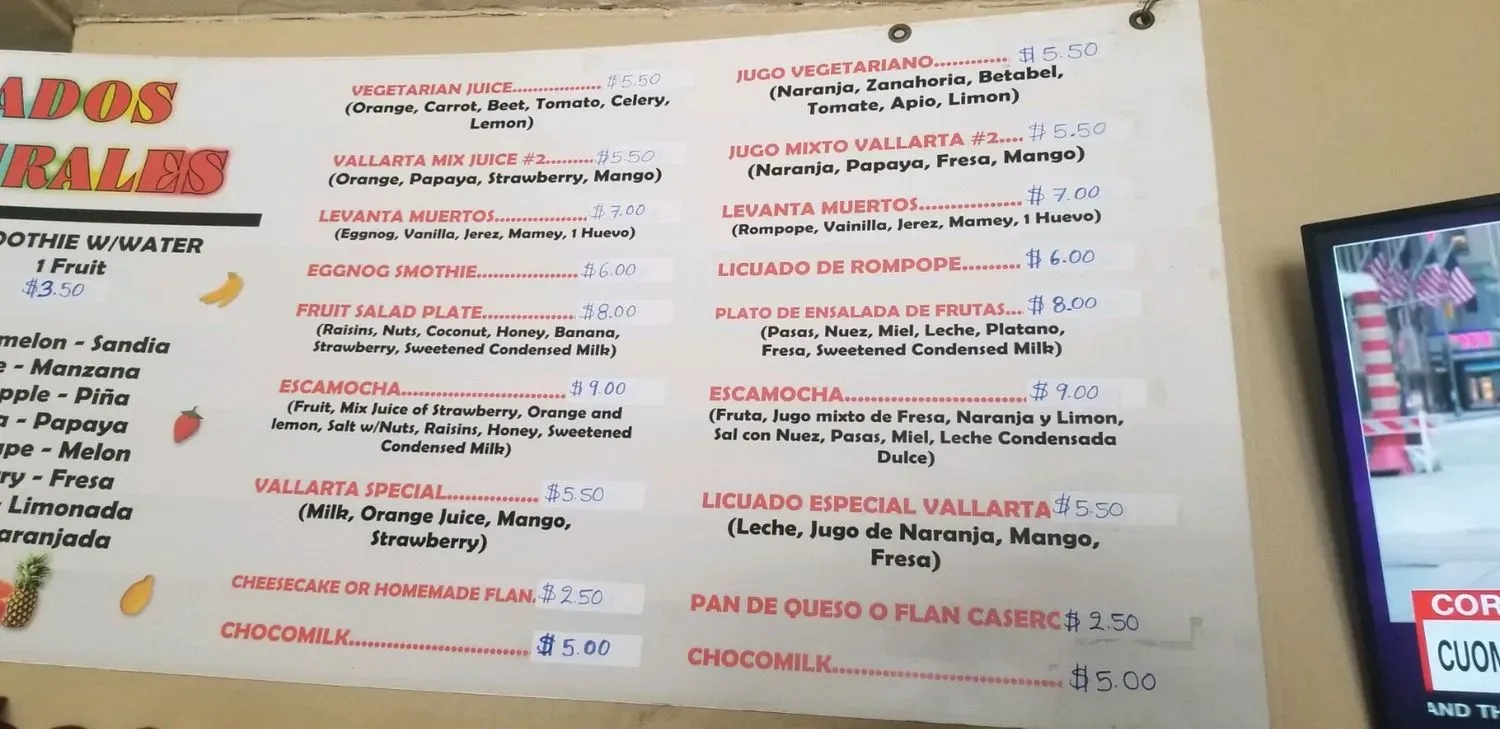 ADOS
RALES
OOTHIE W/WATER
1 Fruit
$3.50
melon - Sandia
e - Manzana
pple - Piña
a - Papaya
upe - Melon
ry - Fresa
- Limonada
aranjada
VEGETARIAN JUICE................. $5.50
(Orange, Carrot, Beet, Tomato, Celery,
Lemon)
VALLARTA MIX JUICE #2......... $5.50
(Orange, Papaya, Strawberry, Mango)
LEVANTA MUERTOS................. $7.00
(Eggnog, Vanilla, Jerez, Mamey, 1 Huevo)
EGGNOG SMOTHIE................... $6.00
FRUIT SALAD PLATE................. $8.00
(Raisins, Nuts, Coconut, Honey, Banana,
Strawberry, Sweetened Condensed Milk)
ESCAMOCHA............................ $9.00
(Fruit, Mix Juice of Strawberry, Orange and
lemon, Salt w/Nuts, Raisins, Honey, Sweetened
Condensed Milk)
VALLARTA SPECIAL................ $5.50
(Milk, Orange Juice, Mango,
Strawberry)
CHEESECAKE OR HOMEMADE FLAN. $2.50
CHOCOMILK............................... $5.00
JUGO VEGETARIANO............ $5.50
(Naranja, Zanahoria, Betabel,
Tomate, Apio, Limon)
JUGO MIXTO VALLARTA #2.... $5.50
(Naranja, Papaya, Fresa, Mango)
LEVANTA MUERTOS................. $7.00
(Rompope, Vainilla, Jerez, Mamey, 1 Huevo)
LICUADO DE ROMPOPE......... $6.00
PLATO DE ENSALADA DE FRUTAS... $8.00
(Pasas, Nuez, Miel, Leche, Platano,
Fresa, Sweetened Condensed Milk)
ESCAMOCHA............................... $9.00
(Fruta, Jugo mixto de Fresa, Naranja y Limon,
Sal con Nuez, Pasas, Miel, Leche Condensada
Dulce)
LICUADO ESPECIAL VALLARTA $5.50
(Leche, Jugo de Naranja, Mango,
Fresa)
PAN DE QUESO O FLAN CASERO $2.50
CHOCOMILK....................................... $5.00
COR
CUOM
AND TH